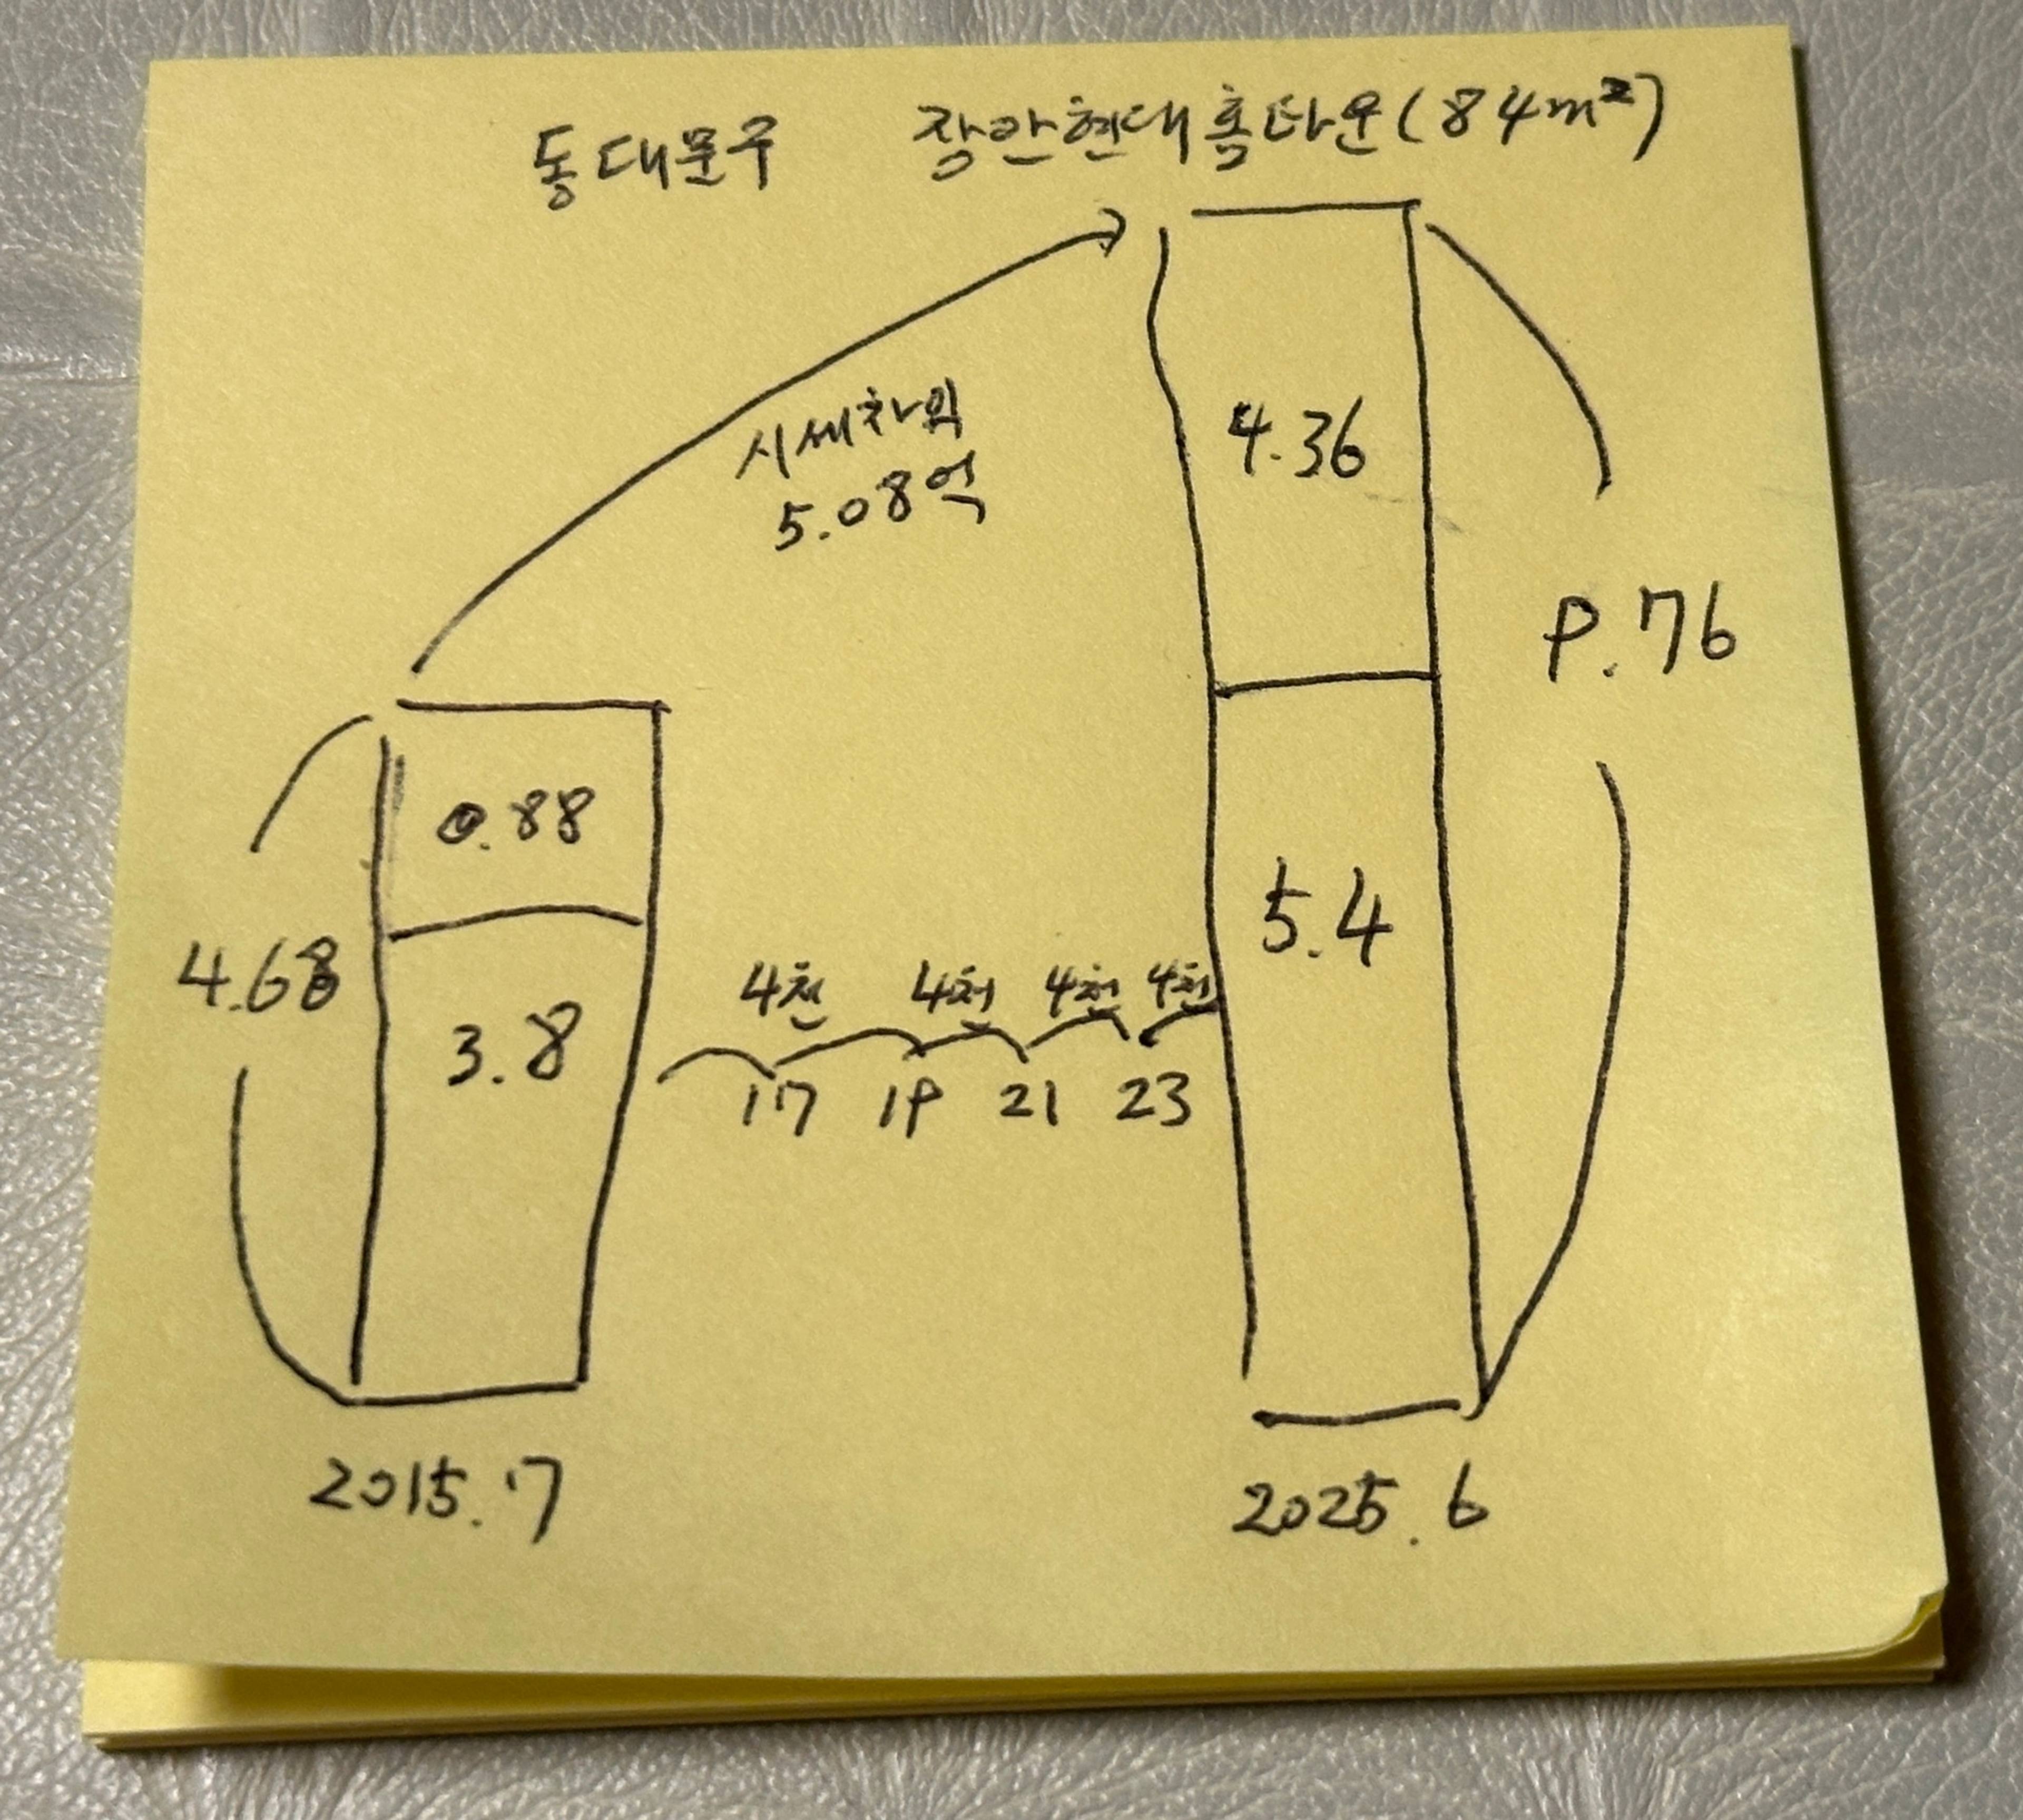 동대문구 장안현대홈타운(84m²)
시세차익
5.08억
4.36
9.76
0.88
4.68
3.8
5.4
4천 4천 4천 4천
17 19 21 23
2015.7
2025.6